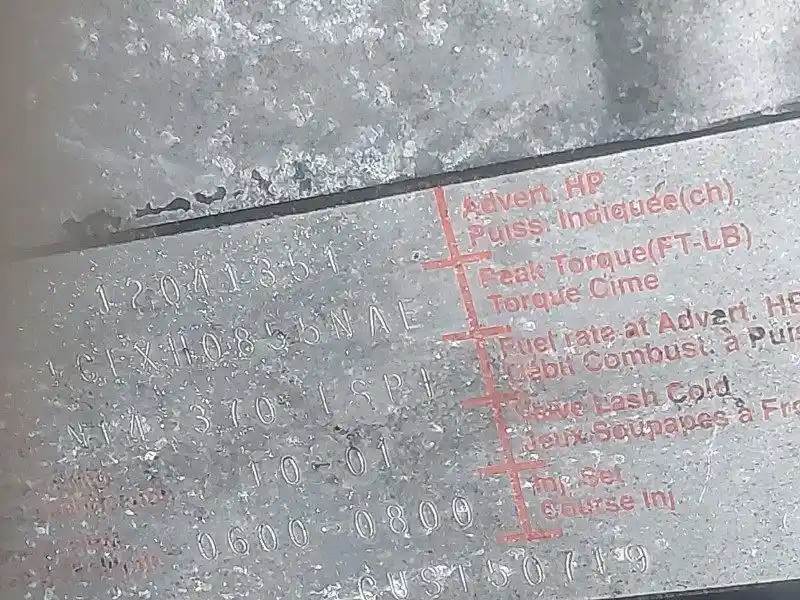 Advert. HP
Puiss. Indiquée(ch)
12041351
Peak Torque(FT-LB)
Torque Cime
1CEXH0855NAE
Fuel rate at Advert. HP
Débit Combust. à
N14 370 ISP1
Valve Lash Cold
Jeux Soupapes à
10-01
Inj. Set
Course Inj
0600-0800
CUS150719